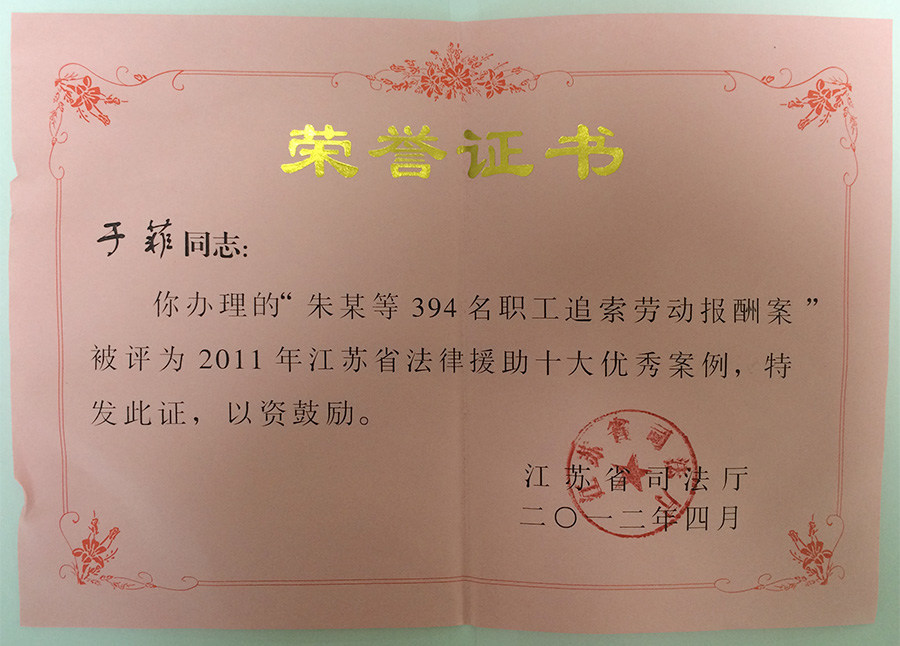 荣誉证书
于菲同志：
你办理的“朱某等394名职工追索劳动报酬案”
被评为2011年江苏省法律援助十大优秀案例，特
发此证，以资鼓励。
江苏省司法厅
江苏省司法厅
二〇一二年四月